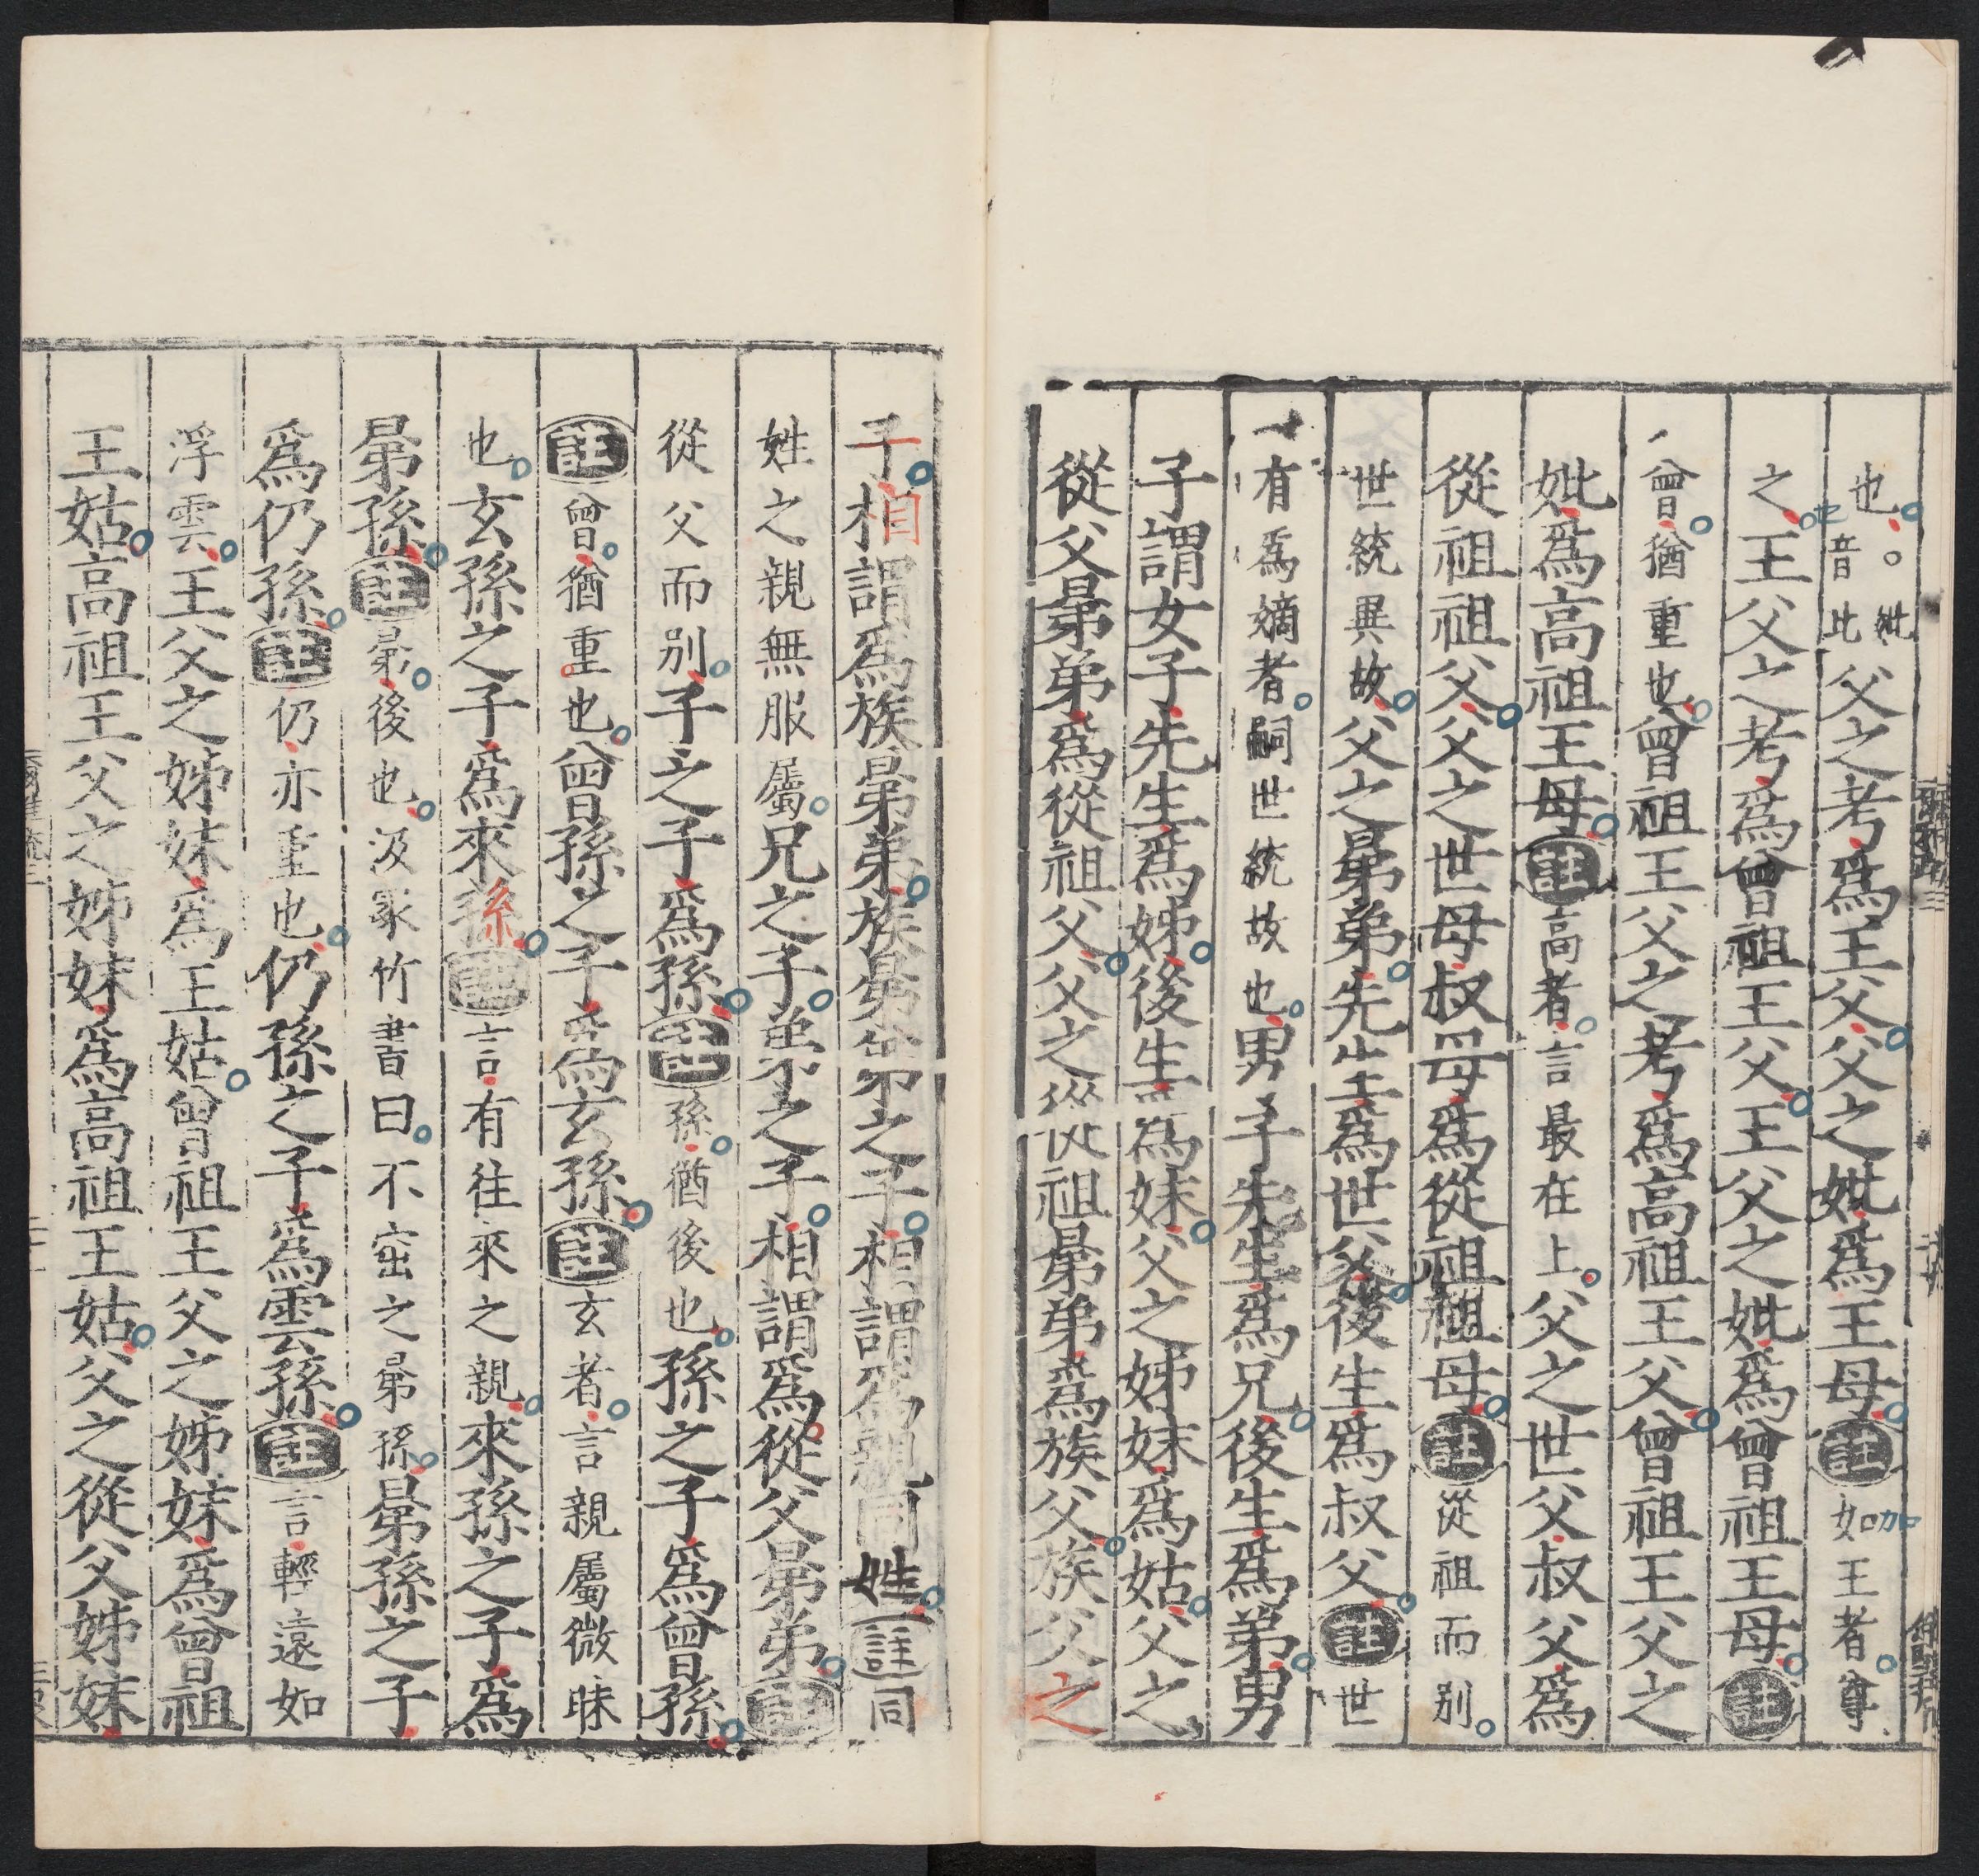 也○𣬈音比父之考爲王父父之妣爲王母註如王者尊
之王父之考爲曾祖王父王父之妣爲曾祖王母註
曾猶重也曾祖王父之考爲高祖王父曾祖王父之
妣爲高祖王母註高者言最在上父之世父叔父爲
從祖祖父父之世母叔母爲從祖祖母註從祖而别
世統異故父之晜弟先生爲世父後生爲叔父註世
有爲嫡者嗣世統故也男子先生爲兄後生爲弟男
子謂女子先生爲姊後生爲妹父之姊妹爲姑父之
從父晜弟爲從祖父父之從祖晜弟爲族父族父之
子相謂爲族晜弟族晜弟之子相謂爲親同姓註同
姓之親無服屬兄之子弟之子相謂爲從父晜弟註
從父而别子之子爲孫註孫猶後也孫之子爲曾孫
註曾猶重也曾孫之子爲玄孫註玄者言親屬微昧
也玄孫之子爲來孫註言有往來之親來孫之子爲
晜孫註晜後也汲冢竹書曰不窋之晜孫晜孫之子
爲仍孫註仍亦重也仍孫之子爲雲孫註言輕遠如
浮雲王父之姊妹爲王姑曾祖王父之姊妹爲曾祖
王姑高祖王父之姊妹爲高祖王姑父之從父姊妹